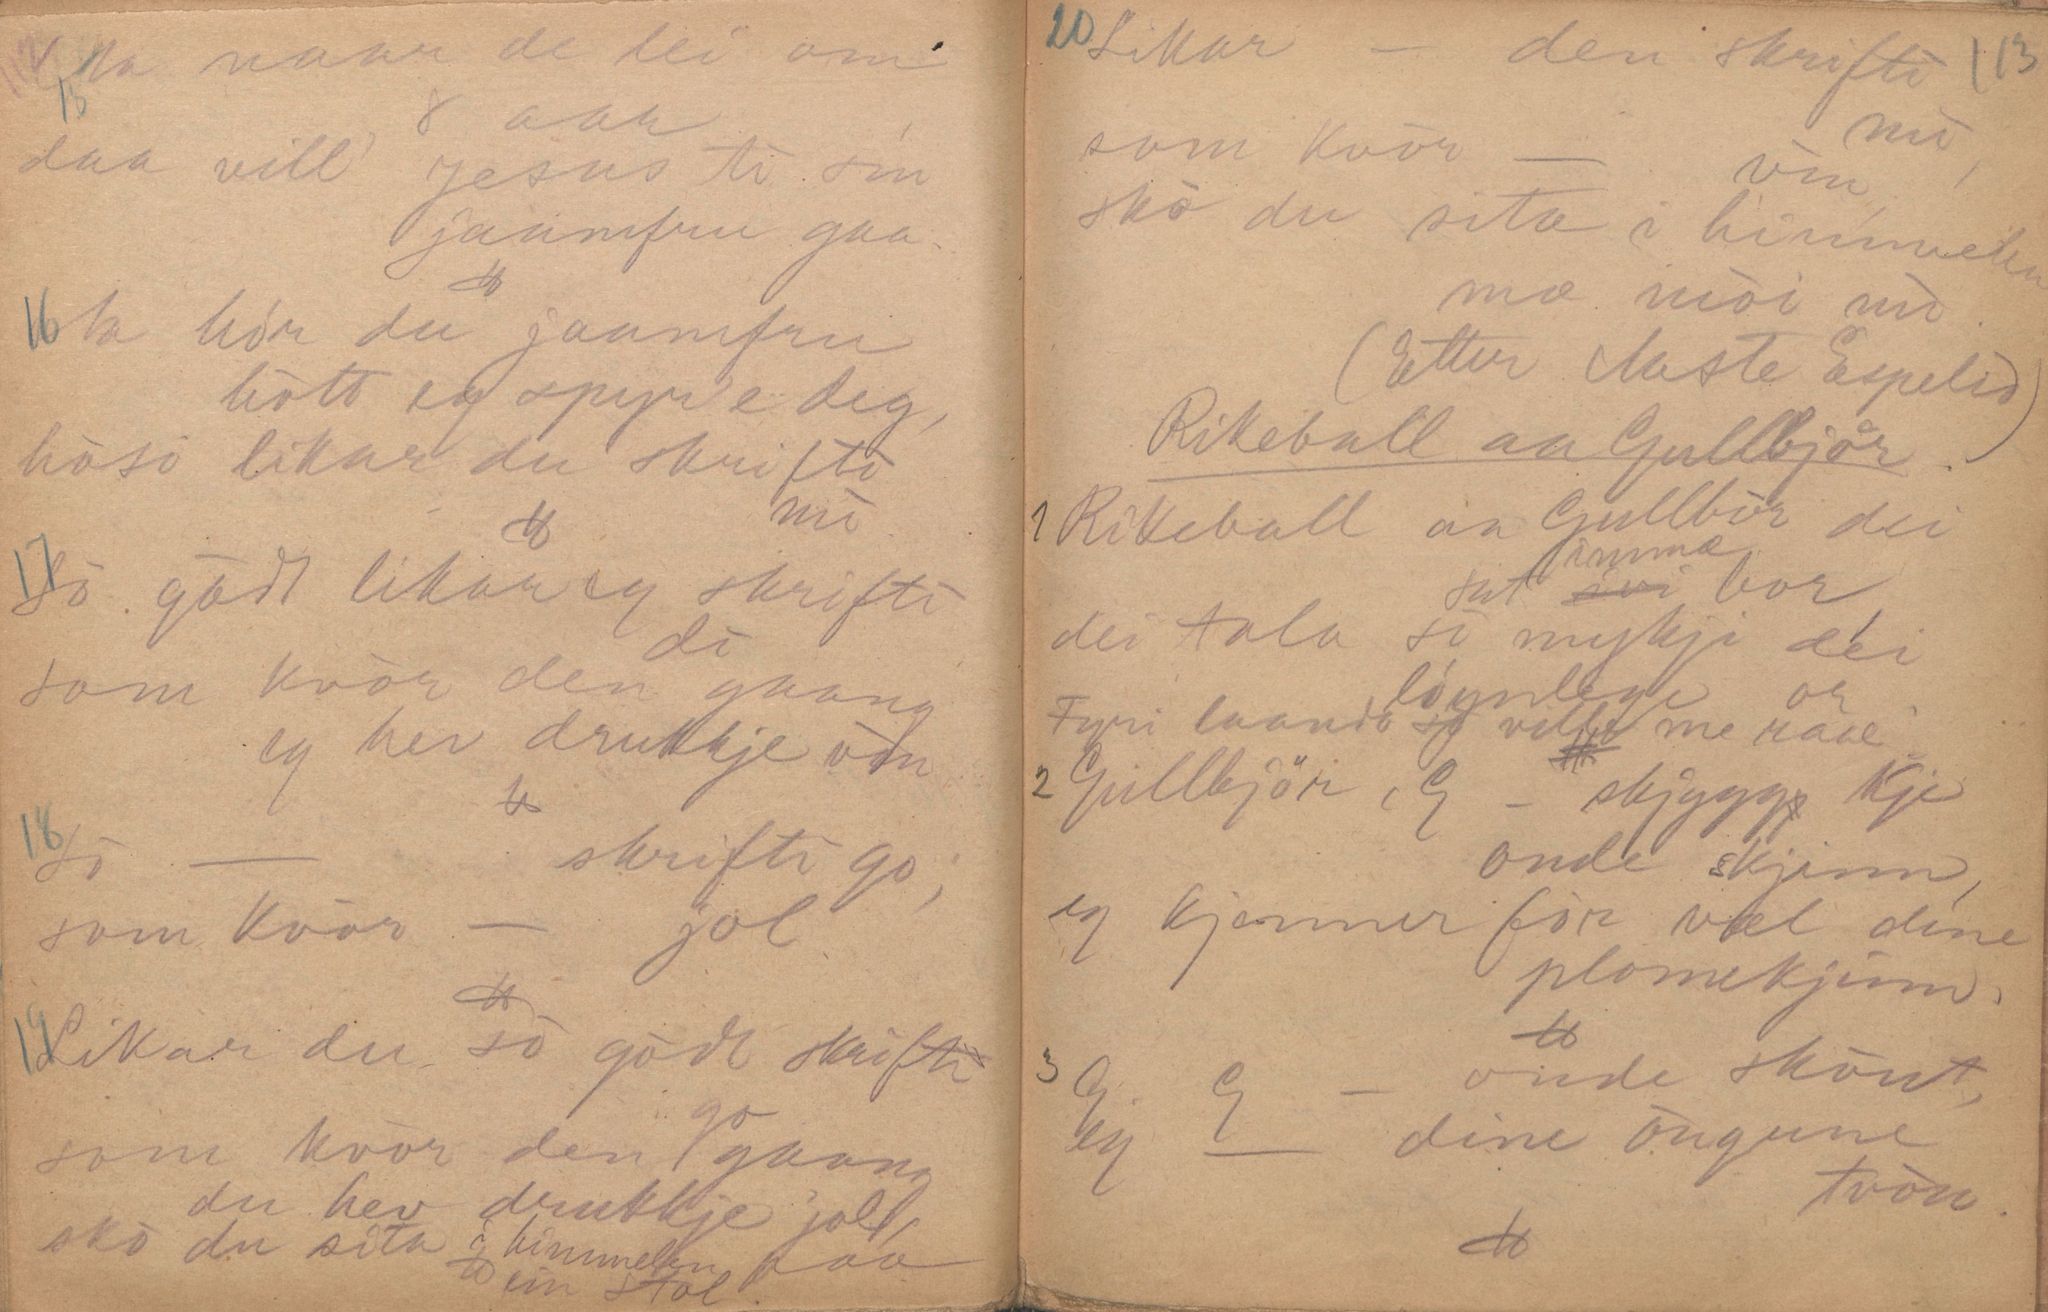 112
15 Aa naar de lei om
8 aar
daa vill Jesus ti sin
jaamfru gaa.
16 Aa hör du jaamfru
hött eg spyr'e deg,
hösö likar du skrifti
mi
17 Sö gödt likar eg skrifti
di
som kvör den gaang
eg hev drukkje vin
18 Sö — skrifti go,
som kvör — jol
19 Likar du sö gödt skrifti
go
som kvör den gaang
du hev drukkje jol,
skö du sita i himmelen paa
ein stol.
113
20 Likar — den skrifti
mi,
som kvör — vin,
skö du sita i himmelen
mæ möi mi.
(Etter Aaste Espelid)
Rikeball aa Gullbjör.
1 Rikeball aa Gullbör dei
imma
sat bor
dei tala sö mykji dei
löynlege or
Fyri laando eg ville me raae.
2 Gullbjör, G — skjygg Kje
onde skjinn,
eg kjenner för væl dine
plomekjinn.
3 G G — onde skönt,
eg — dine öugune
tvön.